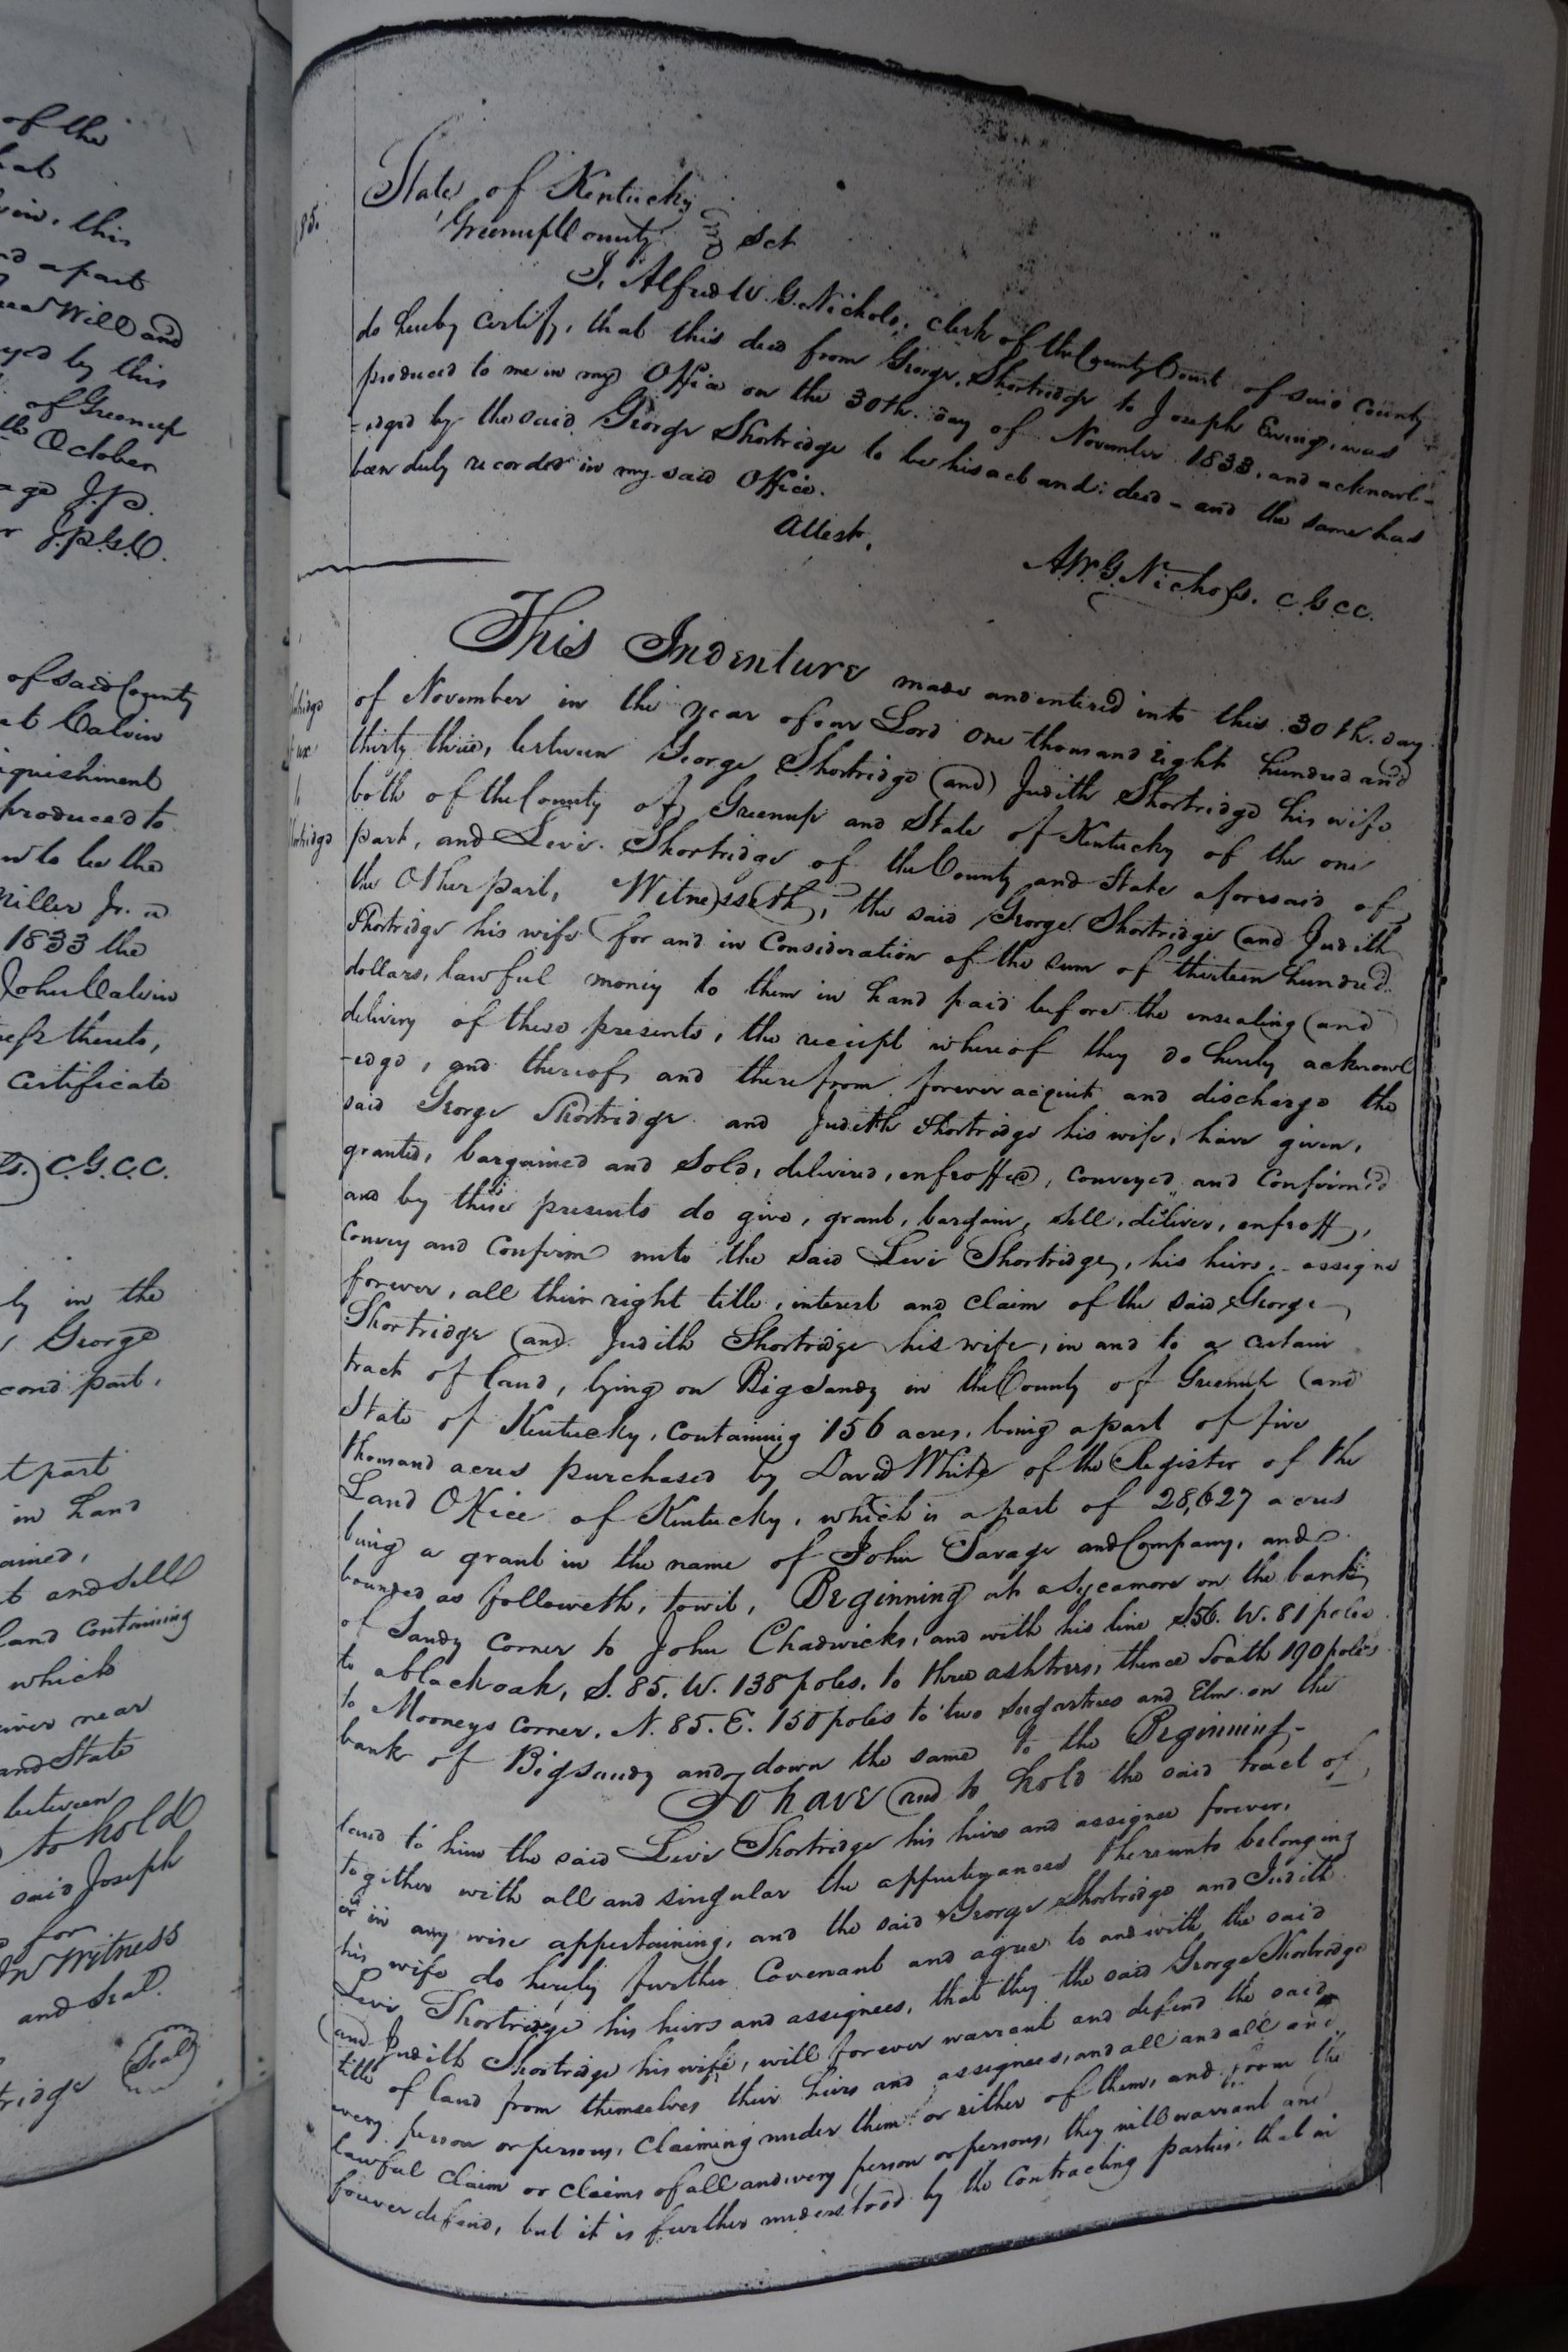 of the
this
apart
Will and
by this
of Greenup
October
J.P.
J.P.G.C.
of said County
Calvin
produced to
to be the
Miller Jr. a
1833 the
John Calvin
thereto,
Certificate
C.G.C.C.
in the
George
part,
part
in hand
and Sell
land Containing
which
near
and State
between
to hold
said Joseph
for
In Witness
and Seal.
Seal
85.
State of Kentucky
Greenup County Sct
I, Alfred W. G. Nichols, clerk of the County Court of said County
do hereby certify, that this deed from George Shortridge to Joseph Ewing, was
produced to me in my Office on the 30th. day of November 1833, and acknowl-
-edged by the said George Shortridge to be his act and deed - and the same has
been duly recorded in my said Office.
Attest,
A.W.G. Nichols. C.G.C.C.
This Indenture made and entered into this 30th. day
of November in the year of our Lord One thousand eight hundred and
thirty three, between George Shortridge (and) Judith Shortridge his wife
both of the County of Greenup and State of Kentucky of the one
part, and Levi Shortridge of the County and State aforesaid of
the Other part, Witnesseth, the said George Shortridge (and Judith
Shortridge his wife (for and in Consideration of the sum of thirteen hundred
dollars, lawful money to them in hand paid before the ensealing (and
delivery of these presents, the receipt whereof they do hereby acknowl
-edge, and thereof, and therefrom forever acquit and discharge the
said George Shortridge and Judith Shortridge his wife, have given,
granted, bargained and Sold, delivered, enfeoffed, conveyed and Confirmed
and by these presents do give, grant, bargain, sell, deliver, enfeoff,
Convey and Confirm unto the said Levi Shortridge, his heirs, assigns
forever, all their right title, interest and Claim of the said George
Shortridge (and Judith Shortridge his wife, in and to a certain
tract of land, lying on Big Sandy in the County of Greenup (and
State of Kentucky, Containing 156 acres, being a part of five
thousand acres purchased by David White of the Register of the
Land Office of Kentucky, which is a part of 28,627 acres
being a grant in the name of John Savage and Company, and
bounded as followeth, towit, Beginning at a Sycamore on the bank
of Sandy Corner to John Chadwicks, and with his line S.56. W. 81 poles
to a black oak, S. 85. W. 138 poles, to three ashtrees, thence South 190 poles
to Mooneys Corner, N. 85. E. 150 poles to two Sugartrees and Elm on the
bank of Bigsandy and down the same to the Beginning-
To have (and to hold the said tract of
land to him the said Levi Shortridge his heirs and assignes forever,
together with all and singular the appurtenances thereunto belonging
or in any wise appertaining, and the said George Shortridge and Judith
his wife do hereby further Covenant and agree to and with the said
Levi Shortridge his heirs and assignees, that they the said George Shortridge
(and Judith Shortridge his wife, will forever warrant and defend the said
title of land from themselves their heirs and assignees, and all and all and
every person or persons, Claiming under them or either of them, and from the
lawful claim or claims of all and every person or persons, they will warrant and
forever defend, but it is further understood by the Contracting parties, that in